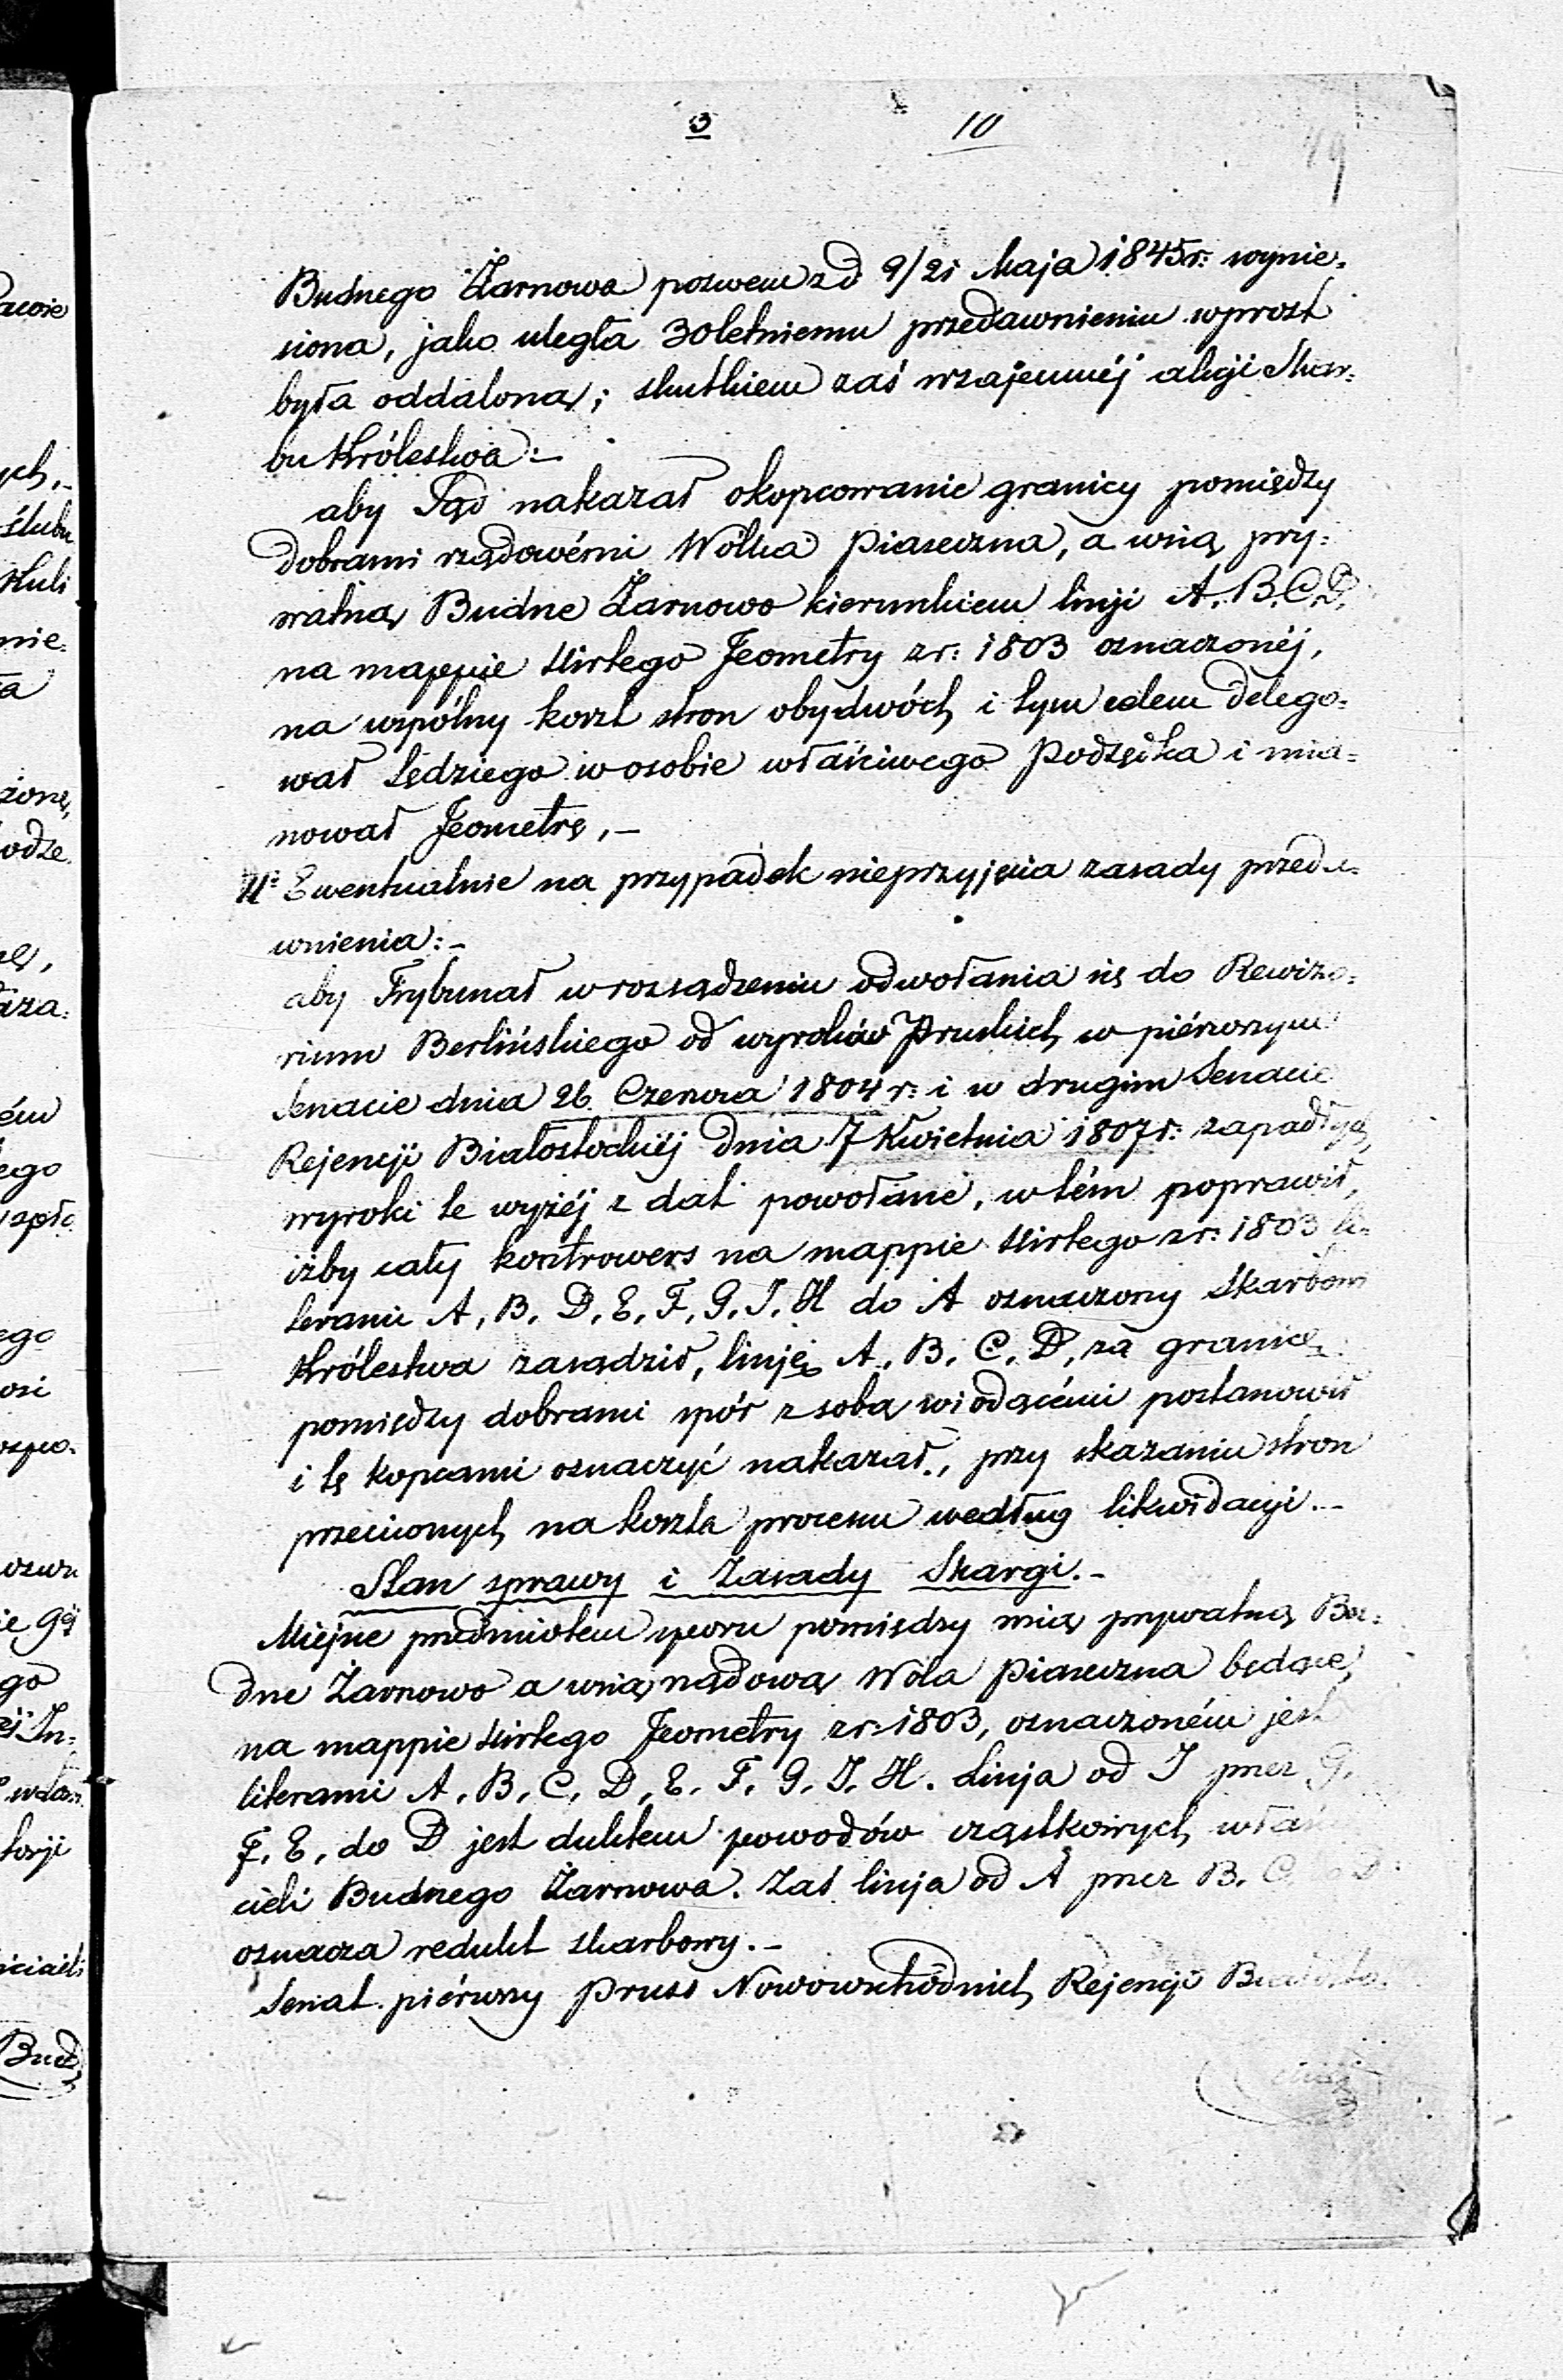 3 10
49
Budnego Żarnowa pozwem z d 9/21 Maja 1845 r: wynie=
siona, jako uległa 30letniemu przedawnieniu wprost
była oddaloną; skutkiem zaś wzajemnéj akcji Skar=
bu Królestwa:-
aby Sąd nakazał okopcowanie granicy pomiędzy
dobrami rządowémi Wólka Piaseczna, a wsią pry=
watną Budne Żarnowo kierunkiem linji A. B. C. D.
na mappie Kirtego Jeometry z r: 1803 oznaczonéj,
na wspólny koszt stron obydwóch i tym celem delego=
wał Sędziego w osobie właściwego Podsędka i mia=
nował Jeometrę,-
Ewentualnie na przypadek nieprzyjęcia zasady przeda=
wnienia:-
aby Trybunał w rozsądzeniu odwołania się do Rewizo=
rium Berlińskiego od wyroków Pruskich w piérwszym
Senacie dnia 26 Czerwca 1804 r: i w drugim Senacie
Rejencji Białostockiéj dnia 7 Kwietnia 1807 r: zapadłych,
wyroki te wyżéj z dat powołane, w tém poprawił,
iżby cały kontrowers na mappie Kirtego z r: 1803 li=
terami A, B, D, E, F, G, I, H do A oznaczony Skarbowi
Królestwa zasądził, linję A, B, C, D, za granicę
pomiędzy dobrami spór z sobą wiodącémi postanowił
i tę kopcami oznaczyć nakazał, przy skazaniu stron
przeciwnych na koszta procesu według likwidacji.-
Stan sprawy i Zasady Skargi.-
Miejsce przedmiotem sporu pomiędzy wsią prywatną Bu=
dne Żarnowo a wsią rządową Wola Piaseczna będące,
na mappie Kirtego Jeometry z r: 1803, oznaczoném jest
literami A, B, C, D, E, F, G, I, H. Linja od I przez G,
F, E, do D jest duktem powodów cząstkowych właści
cieli Budnego Żarnowa. Zaś linja od A przez B. C. D
oznacza redukt skarbowy.-
Senat piérwszy Pruss Nowowschodnich Rejencji Białosto=
ckiéj